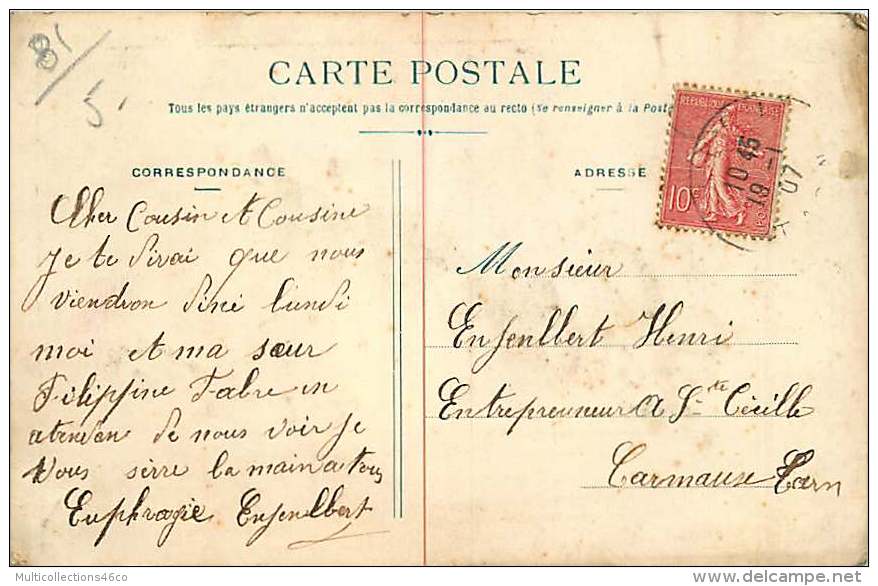 81/
5.
CARTE POSTALE
Tous les pays étrangers n'acceptent pas la correspondance au recto (Se renseigner à la Poste
CORRESPONDANCE
ADRESSE
REPUBLIQUE FRANÇAISE
10c
10 45
19 -1
07
Cher Cousin et Cousine
Je te dirai que nous
viendron diné lundi
moi et ma sœur
Filippine Fabre en
atendan de nous voir Je
Vous serre la main a tous
Euphragie Enjenlbert
Monsieur
Enjenlbert Henri
Entreprenneur A Ste Cécille
Carmaux Tarn
Multicollections46co
delcampe.net